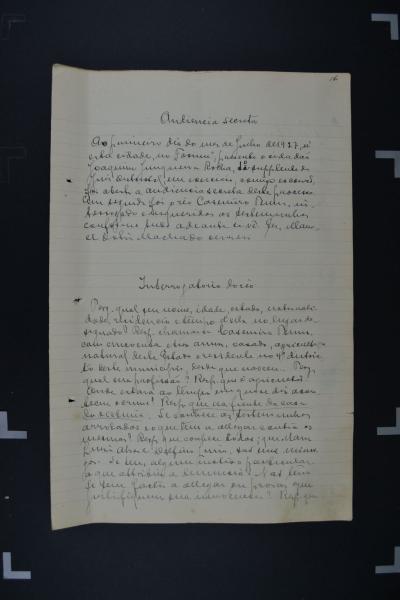 16
Audiencia secreta
Ao primeiro dia do mez de Junho de 1927, n'
esta cidade, no "Forum", presente o cidadão
Joaquim Junqueira Rolha, supplente do
Juiz em exercicio, comigo escrivão,
foi aberta a audiencia secreta deste processo.
Em seguida foi o réo Casemiro Penn, in-
terrogado e inqueridas as testemunhas
conforme tudo adeante se vê. Eu,
Machado escrevi
Interrogatorio do réo
Perg. qual seu nome, idade, estado, naturali-
dade, residencia e tempo della no lugar de-
signado? Resp. chamar-se Casemiro Penn,
com cincoenta e tres annos, casado, agricultor,
natural deste Estado e residente no 4º distric-
to deste municipio, desde que nasceu. Perg.
qual sua profissão? Resp. que é agricultor.
Onde estava ao tempo em que se diz acon-
teceu o crime? Resp. que na frente da casa
Se conhece as testemunhas
arroladas e que tem a allegar contra as
mesmas? Resp. que conhece todas; que
Luiz e são seus inimi-
gos. Se tem algum motivo particular
a que attribúa a denuncia?
Se tem factos a allegar ou provas que
justifiquem sua innocencia? Resp. que